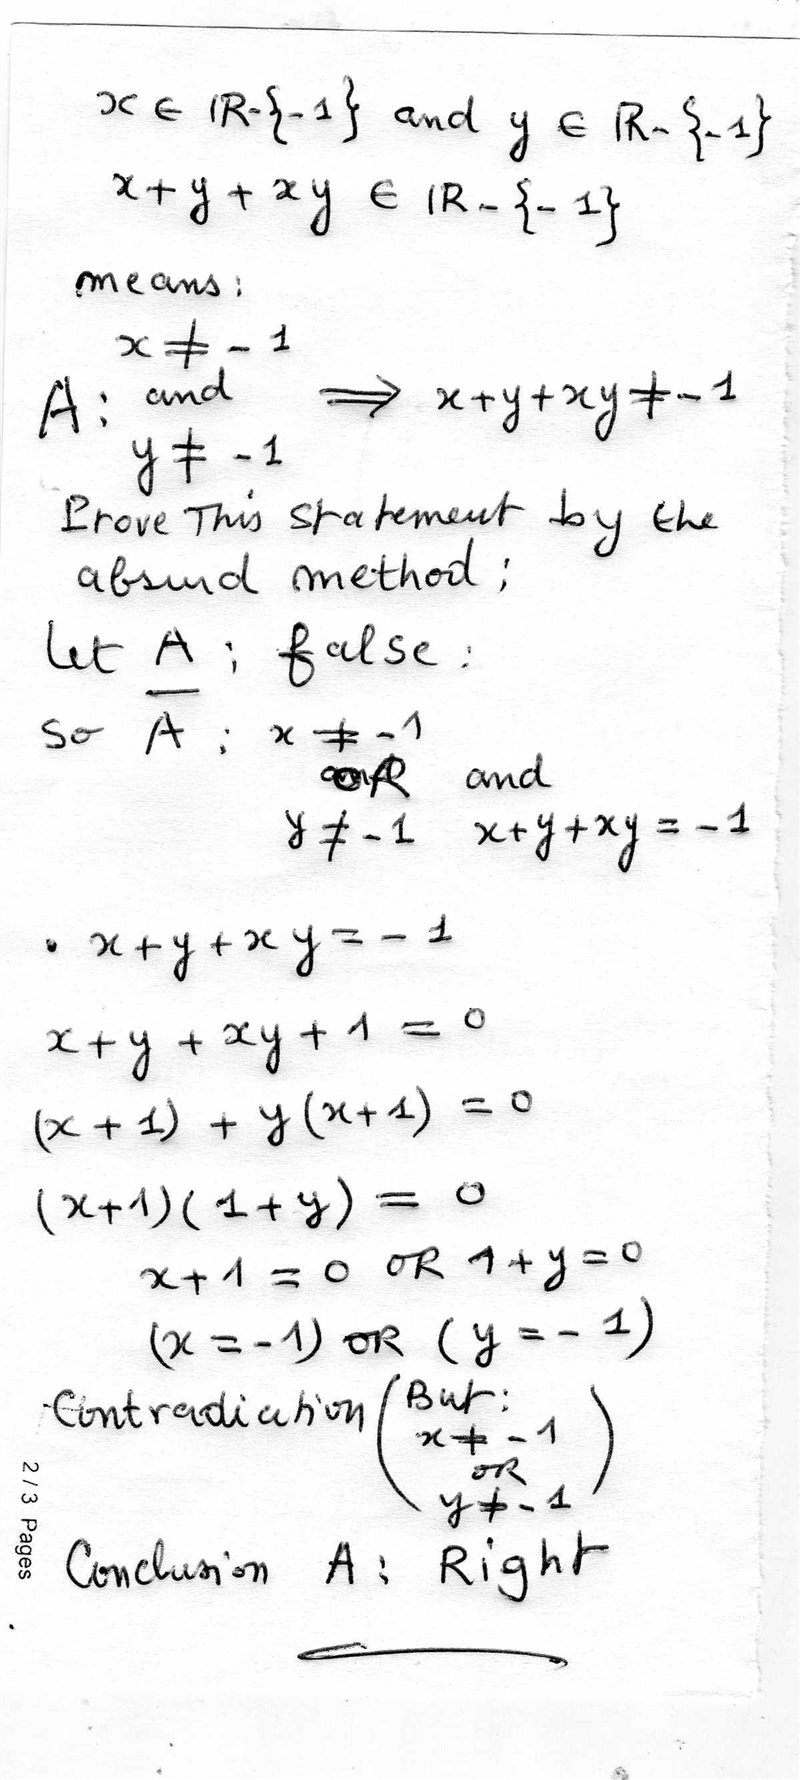 x ∈ ℝ-{-1} and y ∈ ℝ-{-1}
x+y+xy ∈ ℝ-{-1}
means:
x ≠ -1
A: and ⟹ x+y+xy ≠ -1
y ≠ -1
Prove This statement by the
absurd method;
Let A : false :
so A̅ : x ≠ -1
OR and
y ≠ -1 x+y+xy = -1
• x+y+xy = -1
x+y+xy+1 = 0
(x+1) + y(x+1) = 0
(x+1)(1+y) = 0
x+1 = 0 OR 1+y = 0
(x = -1) OR (y = -1)
Contradiction (But:
x ≠ -1
OR
y ≠ -1)
Conclusion A : Right
2 / 3 Pages